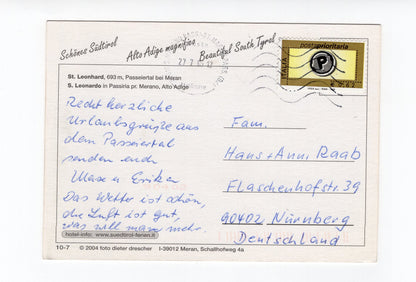 Schönes Südtirol
Alto Adige magnifico
Beautiful South Tyrol
St. Leonhard, 693 m, Passeiertal bei Meran
S. Leonardo in Passiria pr. Merano, Alto Adige
Recht herzliche
Urlaubsgrüße aus
dem Passeiertal
senden euch
Max u Erika
Das Wetter ist schön,
die Luft ist gut,
was will man mehr.
hotel-info: www.suedtirol-ferien.it
10-7 © 2004 foto dieter drescher I-39012 Meran, Schallhofweg 4a
postaprioritaria
ITALIA
P
€ 0,62
Fam.
Hans + Anni Raab
Flaschenhofstr. 39
90402 Nürnberg
Deutschland